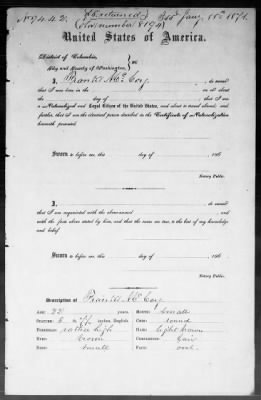 No 9442. (Returned) Iss'd Jany. 10th 1871.
(New number 8194)
United States of America.
District of Columbia,
City and County of Washington, ss:
I, Frank A. McCoy, do swear
that I was born in the on or about
the day of that I am a
Naturalized and Loyal Citizen of the United States, and about to travel abroad; and
further, that I am the identical person described in the Certificate of Naturalization
herewith presented.
Sworn to before me, this day of , 186
Notary Public.
I, , do swear
that I am acquainted with the above-named and with
the facts above stated by him, and that the same are true, to the best of my knowledge
and belief.
Sworn to before me, this day of , 186
Notary Public.
Description of Frank A. McCoy
AGE: 22 years. MOUTH: small
STATURE: 5 feet inches, English. CHIN: round
FOREHEAD: rather high HAIR: light brown
EYES: brown COMPLEXION: fair
NOSE: small FACE: oval.